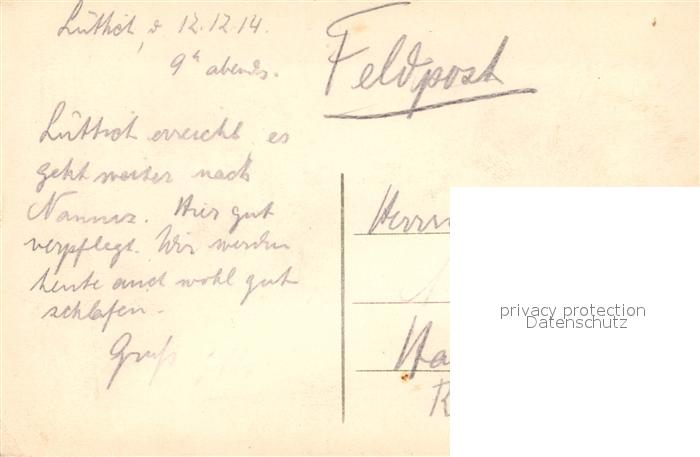 Lüttich, d. 12.12.14.
9h abends.
Feldpost
Lüttich erreicht, es
geht weiter nach
Namur. Hier gut
verpflegt. Wir werden
heute auch wohl gut
schlafen.
Gruß
Herrn
Ha
R
privacy protection
Datenschutz